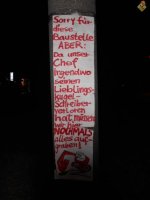 Sorry für
diese
Baustelle
ABER:
Da unser
Chef
Irgendwo
seinen
Lieblings-
kugel-
Schreiber
verloren
hat, müssen
wir hier
NOCHMALS
alles auf-
graben!